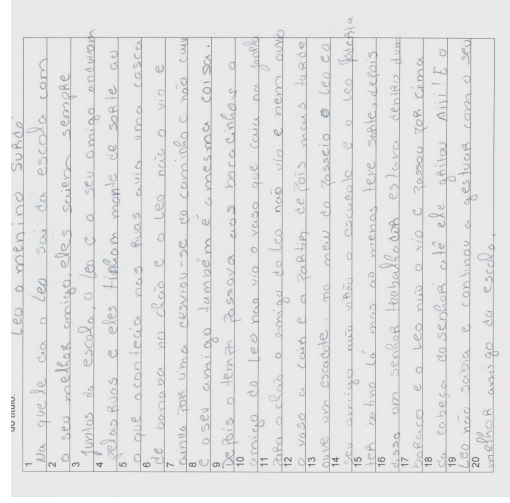 Leo o menino surdo
do título.
1 Na quele dia o Leo sai da escola com
2 o seu melhor amigo, eles saiem sempre
3 juntos da escola, o Leo e o seu amigo andavam
4 pelas Ruas e eles tinham monte de sorte ao
5 o que acontecia nas Ruas avia uma casca
6 de banana no chão e o Leo não o vio e
7 cainda por uma desviou-se do caminho e não caiu
8 e o seu amigo também é a mesma coisa.
9 Depois o tempo passava aos bocacinhos o
10 amigo do Leo nao vio o vaso que caiu na janela
11 para o chão o amigo do Leo não vio e nem ouvio
12 o vaso a cair e a partir depois mais tarde
13 ouve um escadote no meio do passeio o Leo e o
14 seu amigo não virão o escadote e o Leo poderia
15 ter batino lá mas ao menos teve sorte, depois
16 disso um senhor trabalhador estava dentro dum
17 boraco e o Leo não o vio e passou por cima
18 da cabeça do senhor até ele gritou Aiii! E o
19 Leo não sabia e continou a gestuar com o seu
20 melhor amigo da escola.